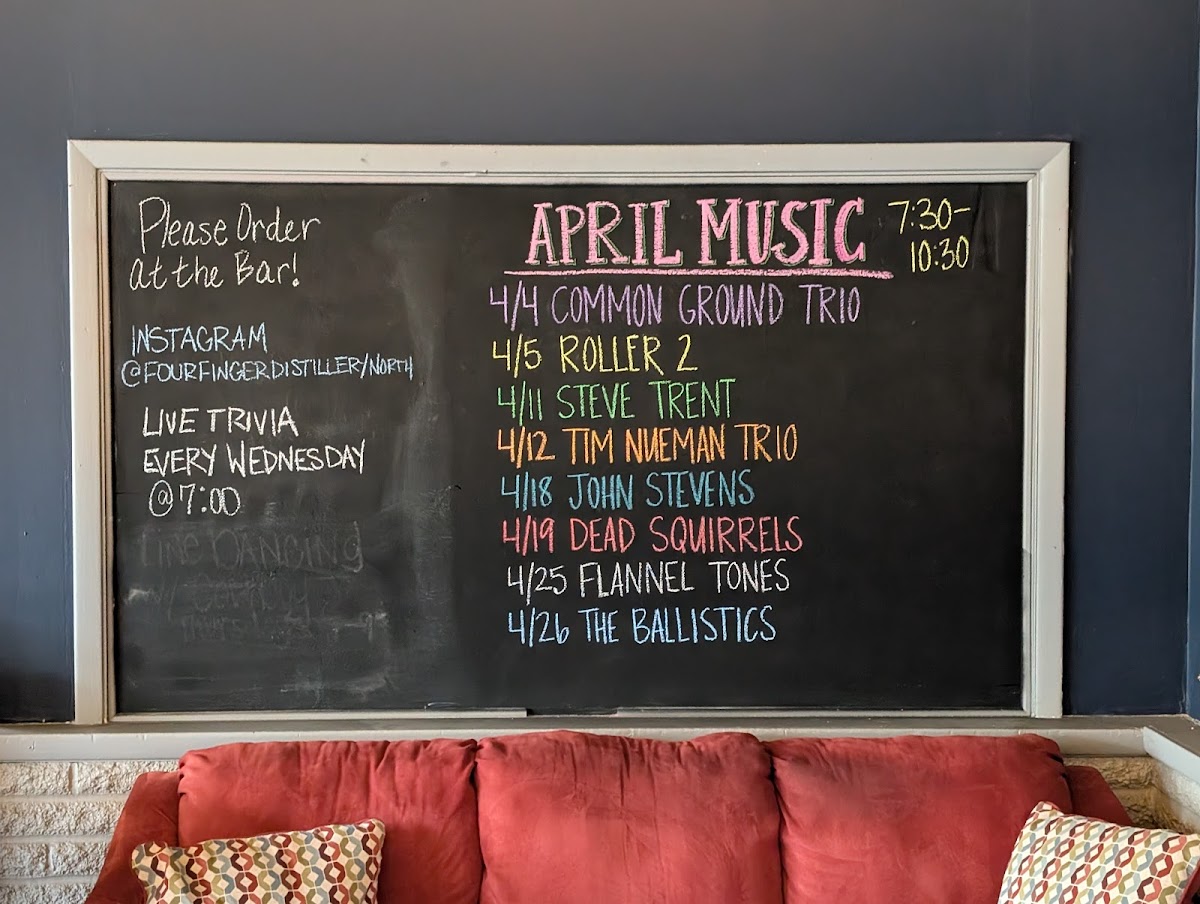 Please Order
at the Bar!
INSTAGRAM
@FOURFINGERDISTILLER/NORTH
LIVE TRIVIA
EVERY WEDNESDAY
@7:00
LINE DANCING
APRIL MUSIC 7:30-
10:30
4/4 COMMON GROUND TRIO
4/5 ROLLER 2
4/11 STEVE TRENT
4/12 TIM NUEMAN TRIO
4/18 JOHN STEVENS
4/19 DEAD SQUIRRELS
4/25 FLANNEL TONES
4/26 THE BALLISTICS